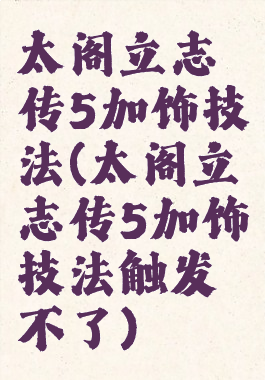 太阁立志
传5加饰技
法(太阁立
志传5加饰
技法触发
不了)